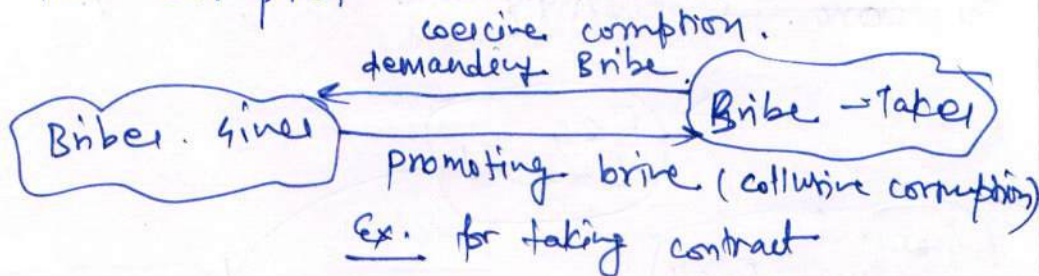 coercive corruption.
demanding Bribe.
Bribe - Taker
Briber. Giver
promoting brive (collusive corruption)
Ex. for taking contract